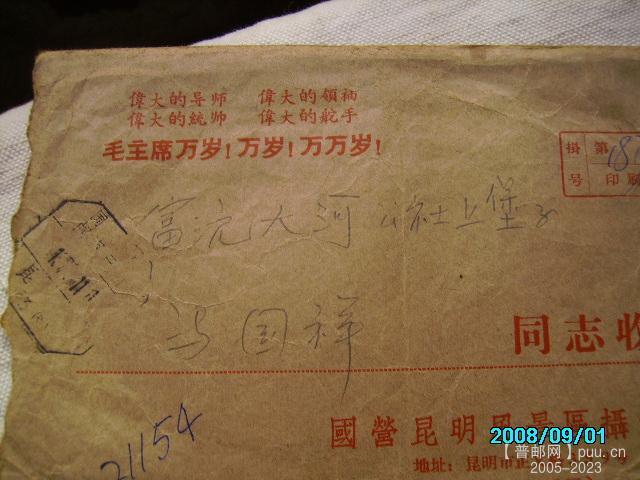 偉大的导师 偉大的領袖
偉大的統帅 偉大的舵手
毛主席万岁！万岁！万万岁！
掛号
第181
印刷
富沅大河公社上堡子
马国祥
同志收
國營昆明風景區攝
地址：昆明市正
21154
2008/09/01
【普邮网】puu.cn
2005-2023